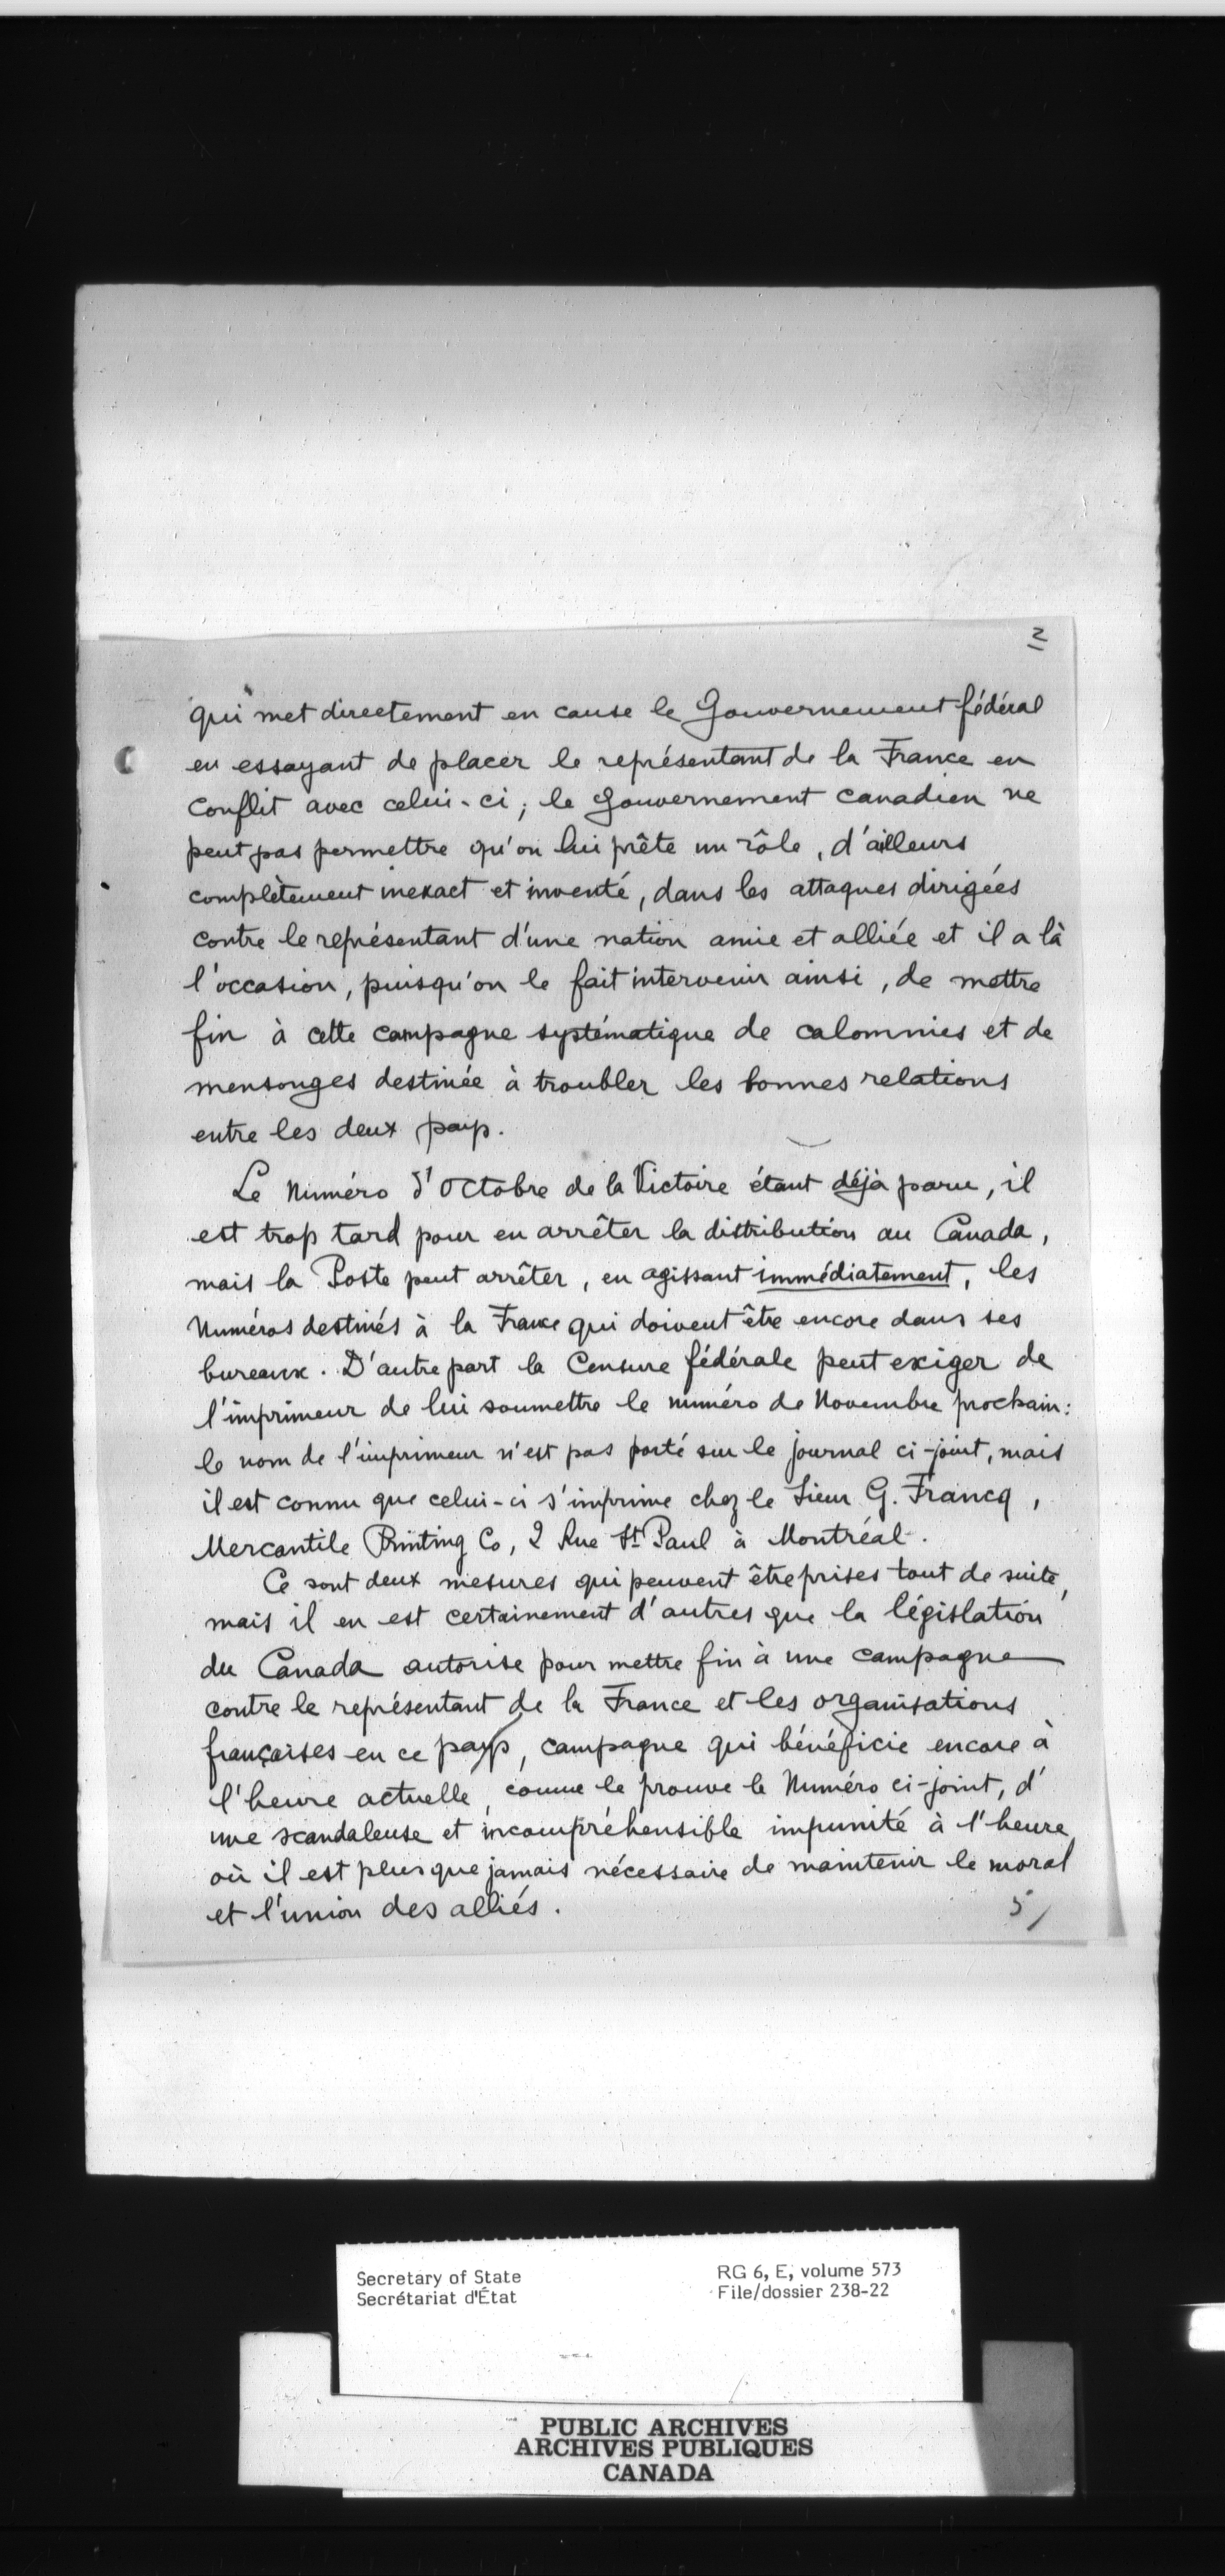 2
qui met directement en cause le Gouvernement fédéral
en essayant de placer le représentant de la France en
conflit avec celui-ci ; le gouvernement canadien ne
peut pas permettre qu'on lui prête un rôle, d'ailleurs
complètement inexact et inventé, dans les attaques dirigées
contre le représentant d'une nation amie et alliée et il a là
l'occasion, puisqu'on le fait intervenir ainsi, de mettre
fin à cette campagne systématique de calomnies et de
mensonges destinée à troubler les bonnes relations
entre les deux pays.
Le Numéro d'Octobre de la Victoire étant déjà paru, il
est trop tard pour en arrêter la distribution au Canada,
mais la Poste peut arrêter, en agissant immédiatement, les
Numéros destinés à la France qui doivent être encore dans ses
bureaux. D'autre part la Censure fédérale peut exiger de
l'imprimeur de lui soumettre le numéro de Novembre prochain :
le nom de l'imprimeur n'est pas porté sur le journal ci-joint, mais
il est connu que celui-ci s'imprime chez le Sieur G. Francq,
Mercantile Printing Co, 2 Rue St Paul à Montréal.
Ce sont deux mesures qui peuvent être prises tout de suite,
mais il en est certainement d'autres que la législation
du Canada autorise pour mettre fin à une campagne
contre le représentant de la France et les organisations
françaises en ce pays, campagne qui bénéficie encore à
l'heure actuelle, comme le prouve le Numéro ci-joint, d'
une scandaleuse et incompréhensible impunité à l'heure
où il est plus que jamais nécessaire de maintenir le moral
et l'union des alliés.
5/
Secretary of State
Secrétariat d'État
RG 6, E, volume 573
File/dossier 238-22
PUBLIC ARCHIVES
ARCHIVES PUBLIQUES
CANADA